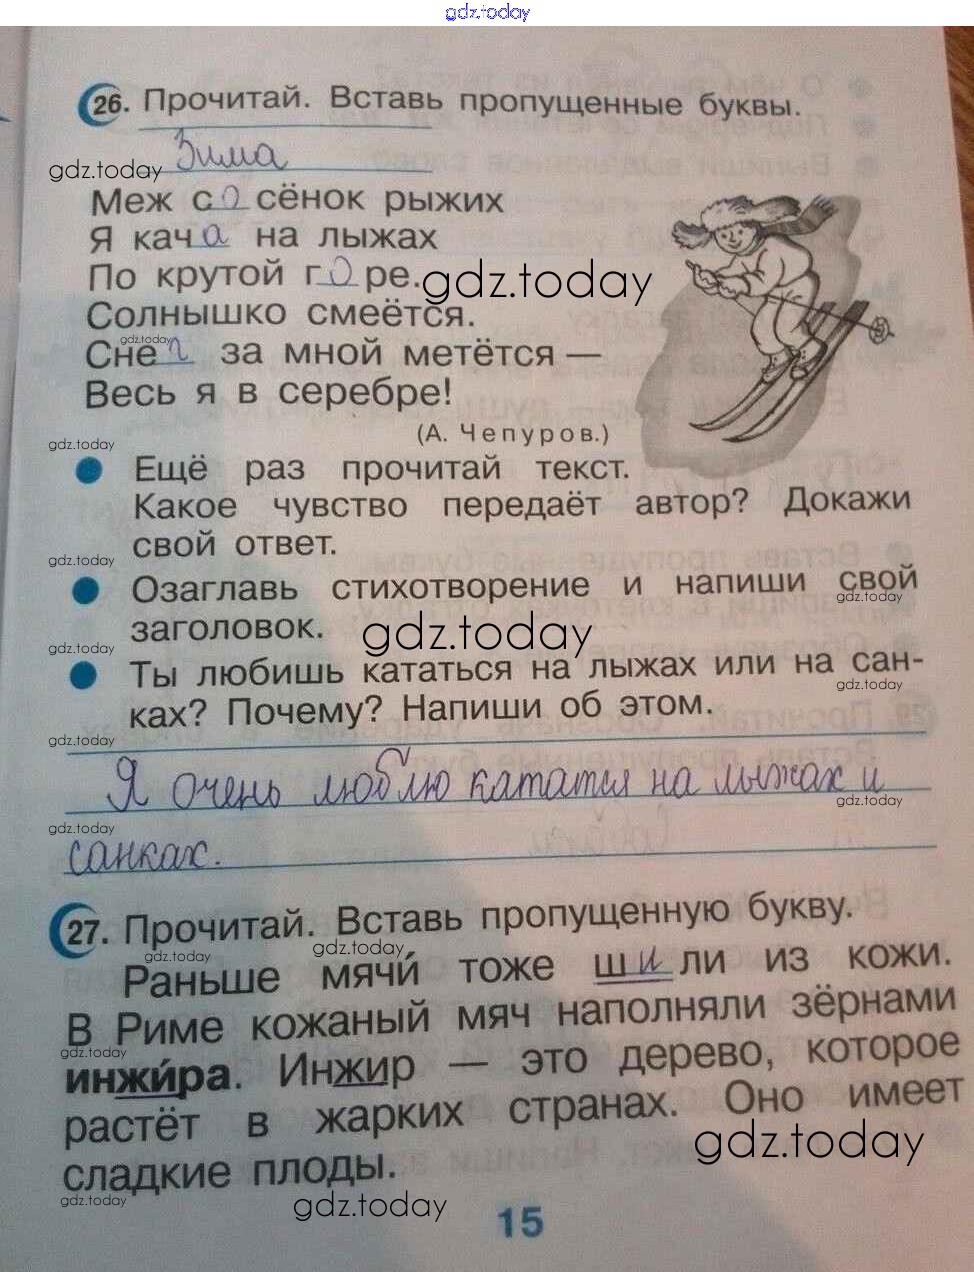 gdz.today
26. Прочитай. Вставь пропущенные буквы.
Зима
gdz.today
Меж сосёнок рыжих
Я кача на лыжах
По крутой горе.
gdz.today
Солнышко смеётся.
gdz.today
Снег за мной метётся —
Весь я в серебре!
(А. Чепуров.)
gdz.today
Ещё раз прочитай текст.
Какое чувство передаёт автор? Докажи
свой ответ.
gdz.today
Озаглавь стихотворение и напиши свой
gdz.today
заголовок.
gdz.today
gdz.today
Ты любишь кататься на лыжах или на сан-
gdz.today
ках? Почему? Напиши об этом.
gdz.today
Я очень люблю кататся на лыжах и
gdz.today
gdz.today
санках.
27. Прочитай. Вставь пропущенную букву.
gdz.today
gdz.today
Раньше мячи́ тоже шили из кожи.
В Риме кожаный мяч наполняли зёрнами
gdz.today
инжи́ра. Инжир — это дерево, которое
растёт в жарких странах. Оно имеет
gdz.today
сладкие плоды.
gdz.today
gdz.today
15